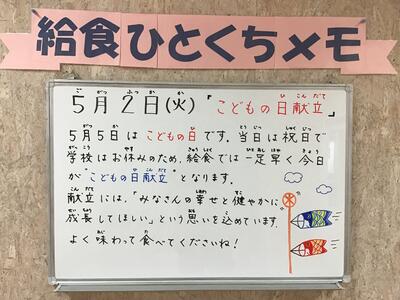 給食ひとくちメモ
5月2日(火)「こどもの日献立」
5月5日は こどもの日 です。当日は祝日で
学校はお休みのため、給食では一足早く今日
が"こどもの日献立"となります。
献立には、「みなさんの幸せと健やかに
成長してほしい」という思いを込めています。
よく味わって食べてくださいね!